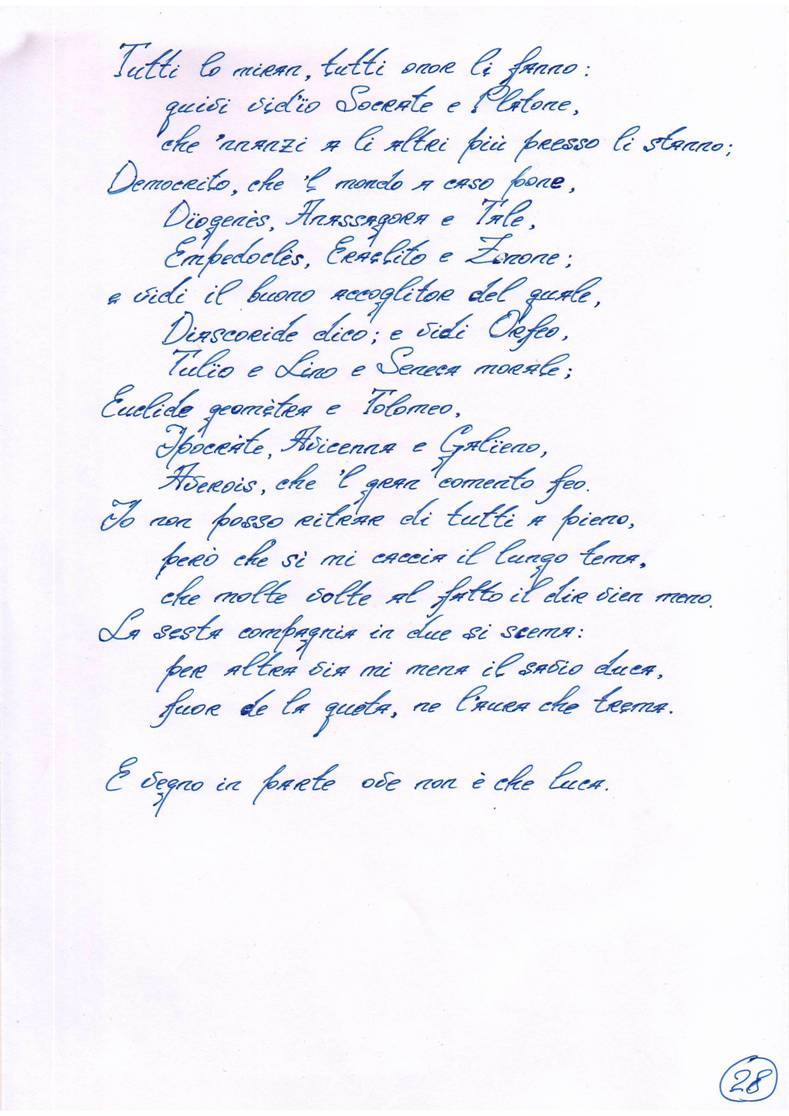 Tutti lo miran, tutti onor li fanno:
quivi vid'ïo Socrate e Platone,
che 'nnanzi a li altri più presso li stanno;
Democrito, che 'l mondo a caso pone,
Dïogenès, Anassagora e Tale,
Empedoclès, Eraclito e Zenone;
e vidi il buono accoglitor del quale,
Dïascoride dico; e vidi Orfeo,
Tulïo e Lino e Seneca morale;
Euclide geomètra e Tolomeo,
Ipocràte, Avicenna e Galïeno,
Averois, che 'l gran comento feo.
Io non posso ritrar di tutti a pieno,
però che sì mi caccia il lungo tema,
che molte volte al fatto il dir vien meno.
La sesta compagnia in due si scema:
per altra via mi mena il savio duca,
fuor de la queta, ne l'aura che trema.
E vegno in parte ove non è che luca.
28